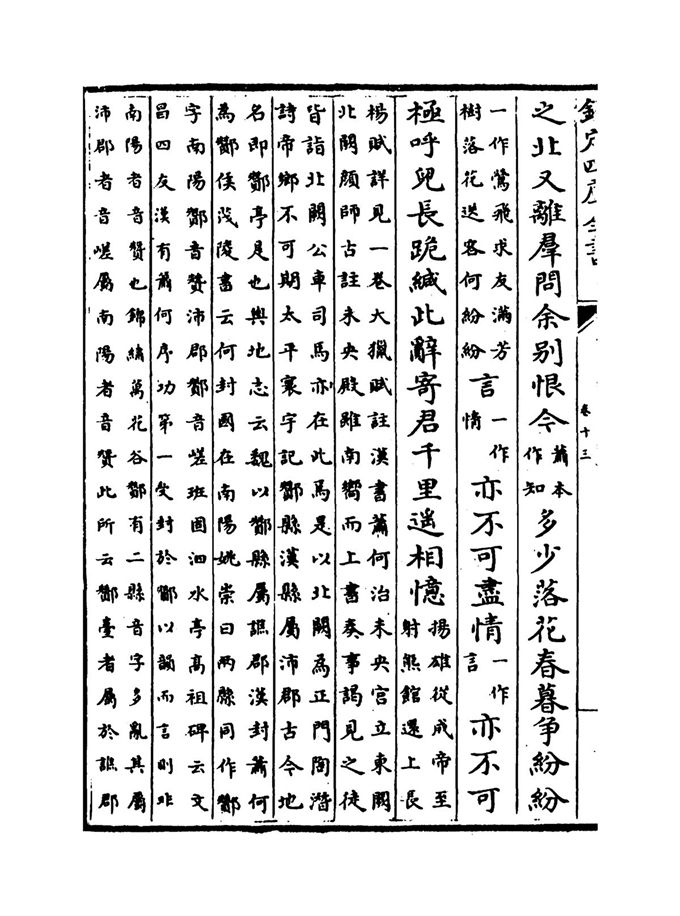 欽定四庫全書
卷十三
之北又離羣問余别恨今蕭本作知多少落花春暮争紛紛
一作鶯飛求友滿芳樹落花送客何紛紛言一作情亦不可盡情一作言亦不可
極呼兒長跪緘此辭寄君千里遥相憶揚雄從成帝至射熊館還上長
楊賦詳見一卷大獵賦註漢書蕭何治未央宫立東闕
北闕顔師古註未央殿雖南嚮而上書奏事謁見之徒
皆詣北闕公車司馬亦在此馬是以北闕為正門陶潛
詩帝鄉不可期太平寰宇記酇縣漢縣屬沛郡古今地
名即酇亭是也輿地志云魏以酇縣屬譙郡漢封蕭何
為酇侯茂陵書云何封國在南陽姚崇曰兩縣同作酇
字南陽酇音贊沛郡酇音嵯班固泗水亭高祖碑云文
昌四友漢有蕭何序功第一受封於酇以韻而言則非
南陽者音贊也錦繡萬花谷酇有二縣音字多亂其屬
沛郡者音嵯屬南陽者音贊此所云酇臺者屬於譙郡